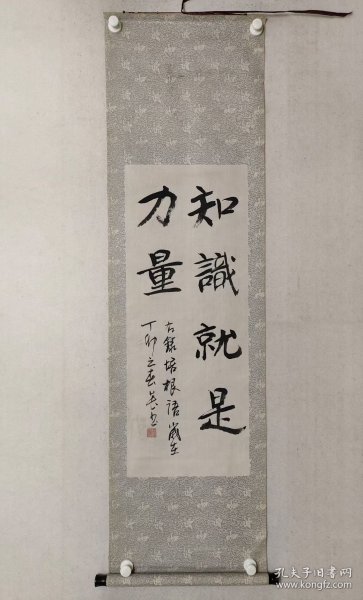 知識就是
力量
右録培根語歲在
丁卯之春
孔夫子旧书网
www.kongfz.com